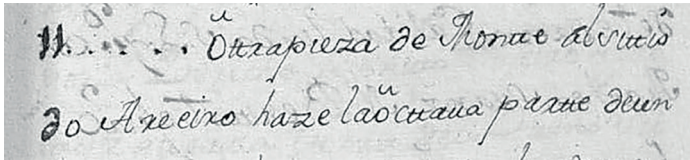 11..... Ottra pieza de Montte al sittio
do Areeiro haze la octtaua partte de un